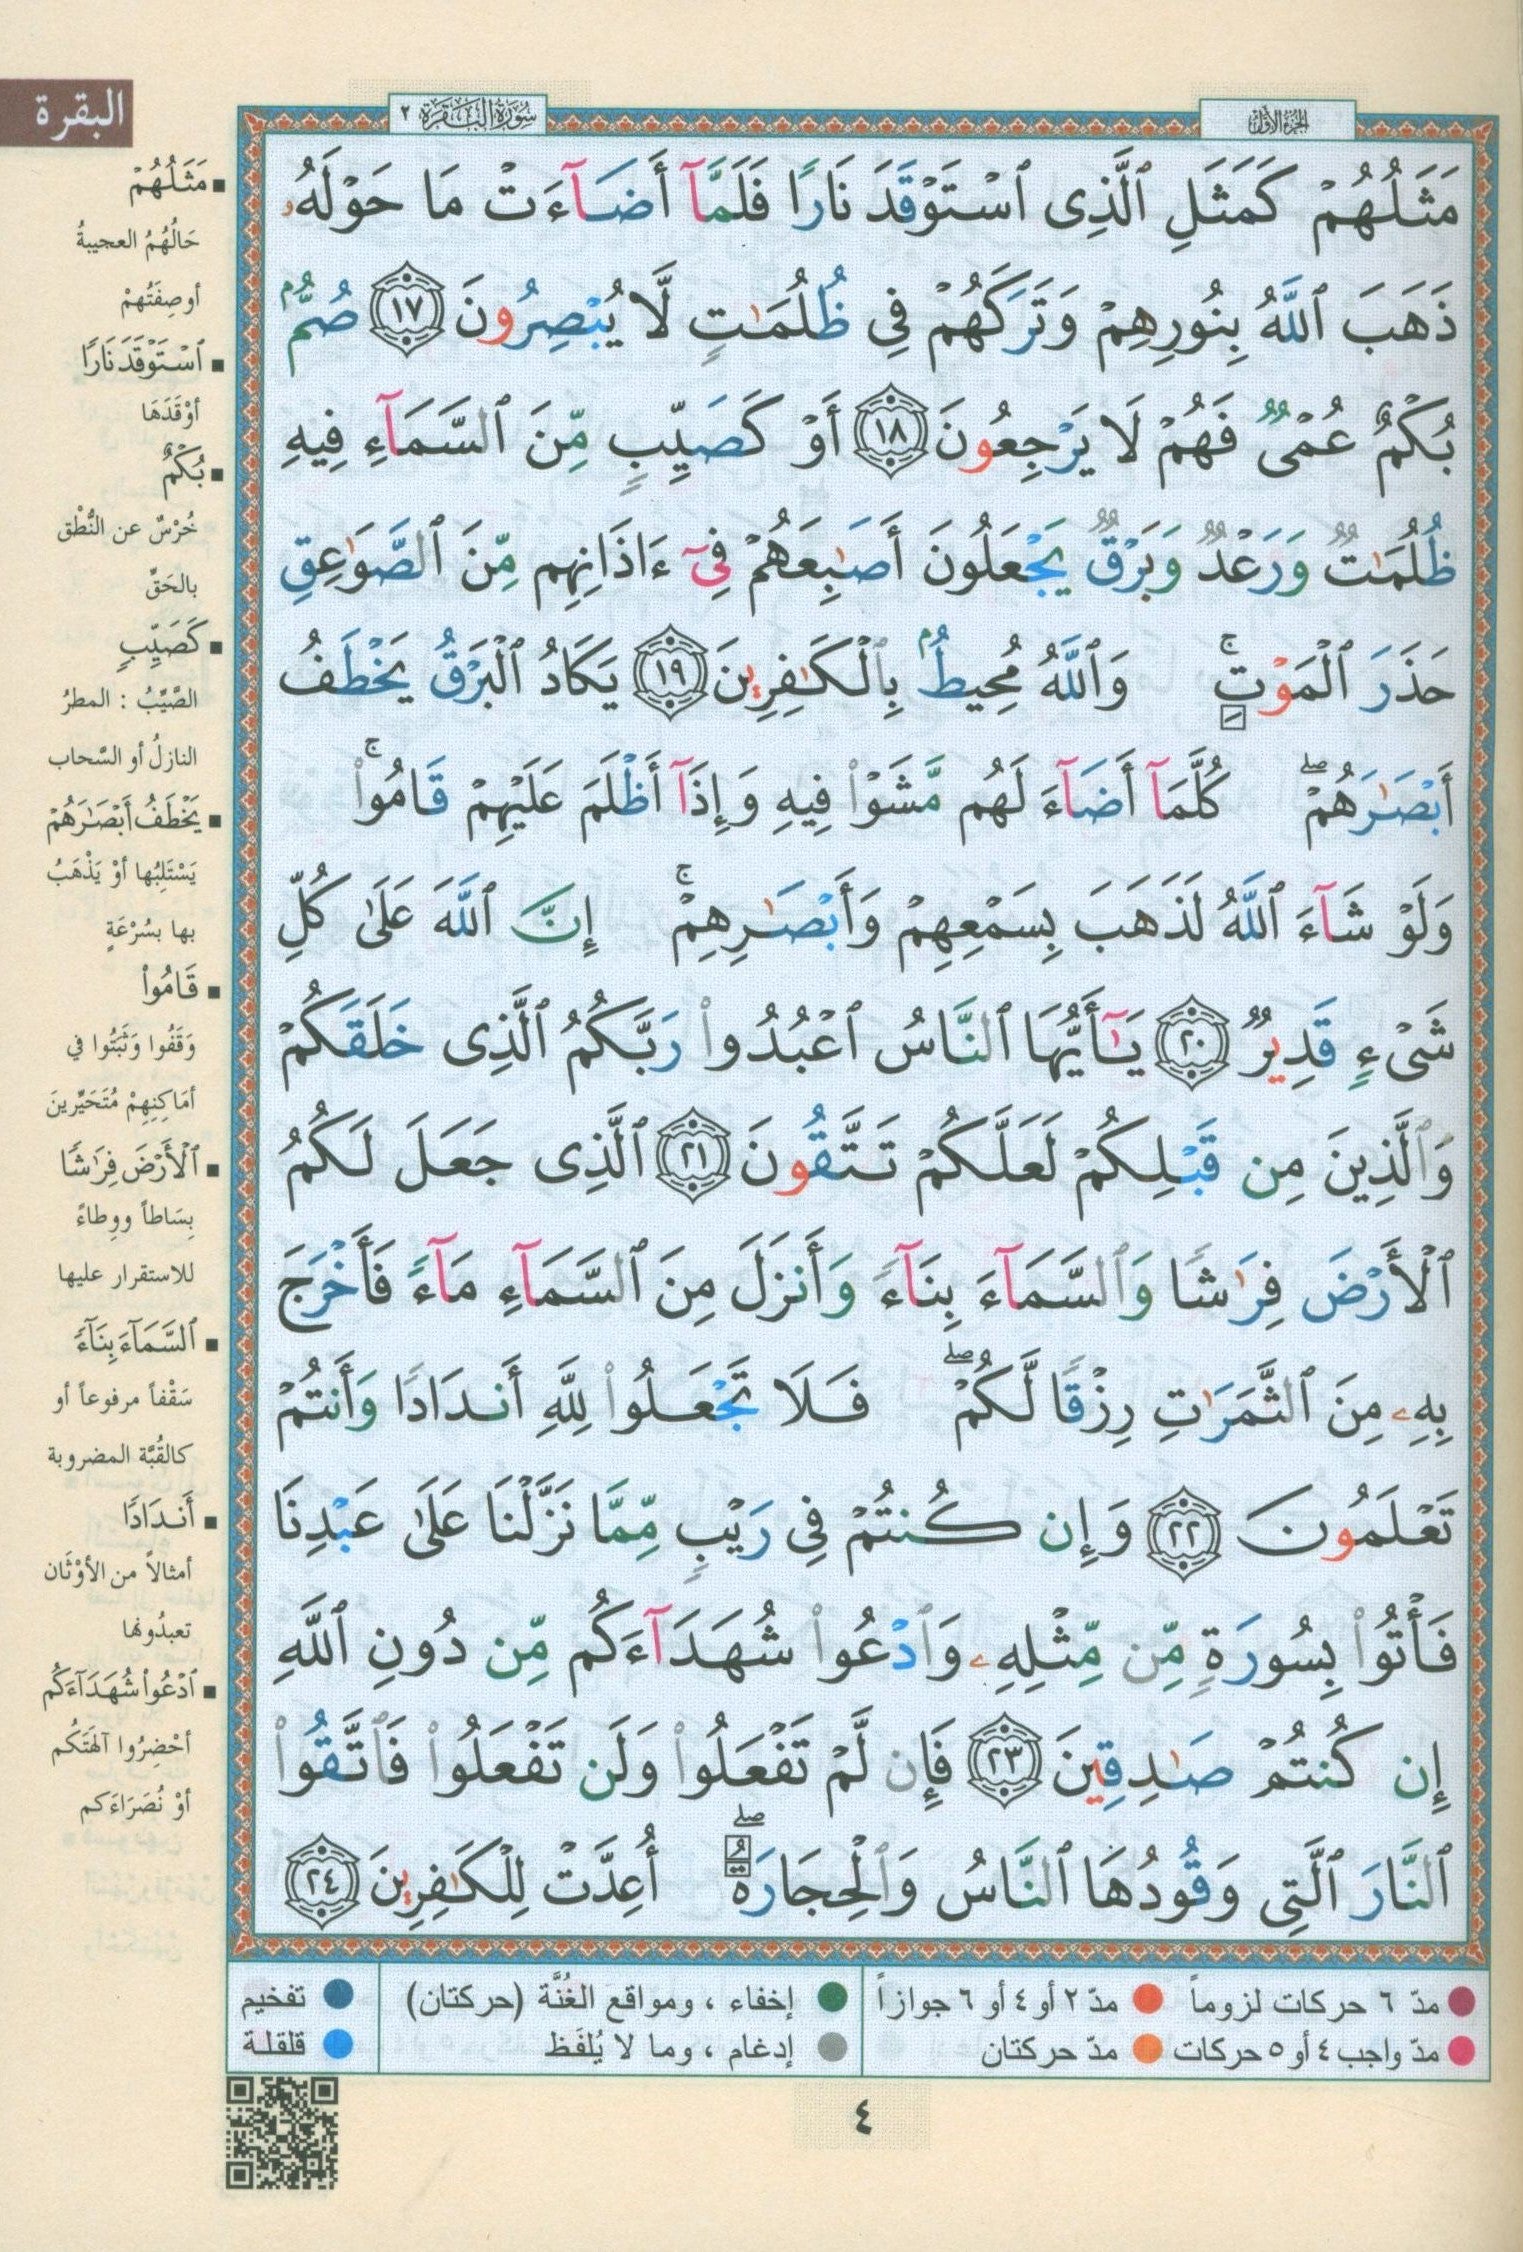 الجزء الأول
سورة البقرة ٢
البقرة
مَثَلُهُمْ كَمَثَلِ ٱلَّذِى ٱسْتَوْقَدَ نَارًا فَلَمَّآ أَضَآءَتْ مَا حَوْلَهُۥ
ذَهَبَ ٱللَّهُ بِنُورِهِمْ وَتَرَكَهُمْ فِى ظُلُمَـٰتٍ لَّا يُبْصِرُونَ ١٧ صُمٌّۢ
بُكْمٌ عُمْىٌ فَهُمْ لَا يَرْجِعُونَ ١٨ أَوْ كَصَيِّبٍ مِّنَ ٱلسَّمَآءِ فِيهِ
ظُلُمَـٰتٌ وَرَعْدٌ وَبَرْقٌ يَجْعَلُونَ أَصَـٰبِعَهُمْ فِىٓ ءَاذَانِهِم مِّنَ ٱلصَّوَٰعِقِ
حَذَرَ ٱلْمَوْتِ ۚ وَٱللَّهُ مُحِيطٌۢ بِٱلْكَـٰفِرِينَ ١٩ يَكَادُ ٱلْبَرْقُ يَخْطَفُ
أَبْصَـٰرَهُمْ ۖ كُلَّمَآ أَضَآءَ لَهُم مَّشَوْا۟ فِيهِ وَإِذَآ أَظْلَمَ عَلَيْهِمْ قَامُوا۟ ۚ
وَلَوْ شَآءَ ٱللَّهُ لَذَهَبَ بِسَمْعِهِمْ وَأَبْصَـٰرِهِمْ ۚ إِنَّ ٱللَّهَ عَلَىٰ كُلِّ
شَىْءٍ قَدِيرٌ ٢٠ يَـٰٓأَيُّهَا ٱلنَّاسُ ٱعْبُدُوا۟ رَبَّكُمُ ٱلَّذِى خَلَقَكُمْ
وَٱلَّذِينَ مِن قَبْلِكُمْ لَعَلَّكُمْ تَتَّقُونَ ٢١ ٱلَّذِى جَعَلَ لَكُمُ
ٱلْأَرْضَ فِرَٰشًا وَٱلسَّمَآءَ بِنَآءً وَأَنزَلَ مِنَ ٱلسَّمَآءِ مَآءً فَأَخْرَجَ
بِهِۦ مِنَ ٱلثَّمَرَٰتِ رِزْقًا لَّكُمْ ۖ فَلَا تَجْعَلُوا۟ لِلَّهِ أَندَادًا وَأَنتُمْ
تَعْلَمُونَ ٢٢ وَإِن كُنتُمْ فِى رَيْبٍ مِّمَّا نَزَّلْنَا عَلَىٰ عَبْدِنَا
فَأْتُوا۟ بِسُورَةٍ مِّن مِّثْلِهِۦ وَٱدْعُوا۟ شُهَدَآءَكُم مِّن دُونِ ٱللَّهِ
إِن كُنتُمْ صَـٰدِقِينَ ٢٣ فَإِن لَّمْ تَفْعَلُوا۟ وَلَن تَفْعَلُوا۟ فَٱتَّقُوا۟
ٱلنَّارَ ٱلَّتِى وَقُودُهَا ٱلنَّاسُ وَٱلْحِجَارَةُ ۖ أُعِدَّتْ لِلْكَـٰفِرِينَ ٢٤
مَثَلُهُمْ
حَالُهُمُ العجيبةُ
أو صِفَتُهمْ
ٱسْتَوْقَدَ نَارًا
أوْقَدَهَا
بُكْمٌ
خُرْسٌ عن النُّطْق
بالحَقِّ
كَصَيِّبٍ
الصَّيِّبُ : المطرُ
النازلُ أو السَّحاب
يَخْطَفُ أَبْصَـٰرَهُمْ
يَسْتَلِبُها أوْ يَذْهَبُ
بها بسُرْعَةٍ
قَامُوا۟
وَقَفُوا وَثَبَتُوا في
أمَاكِنِهِمْ مُتَحَيِّرينَ
ٱلْأَرْضَ فِرَٰشًا
بِسَاطاً ووِطاءً
للاستقرار عليها
ٱلسَّمَآءَ بِنَآءً
سَقْفاً مرفوعاً أو
كالقُبَّة المضروبة
أَندَادًا
أمثالاً من الأوْثَان
تعبدُونها
ٱدْعُوا۟ شُهَدَآءَكُم
أحْضِرُوا آلهَتَكُم
أوْ نُصَرَاءَكم
مدّ ٦ حركات لزوماً مدّ ٢ أو ٤ أو ٦ جوازاً إخفاء ، ومواقع الغُنَّة (حركتان) تفخيم
مدّ واجب ٤ أو ٥ حركات مدّ حركتان إدغام ، وما لا يُلفَظ قلقلة
٤